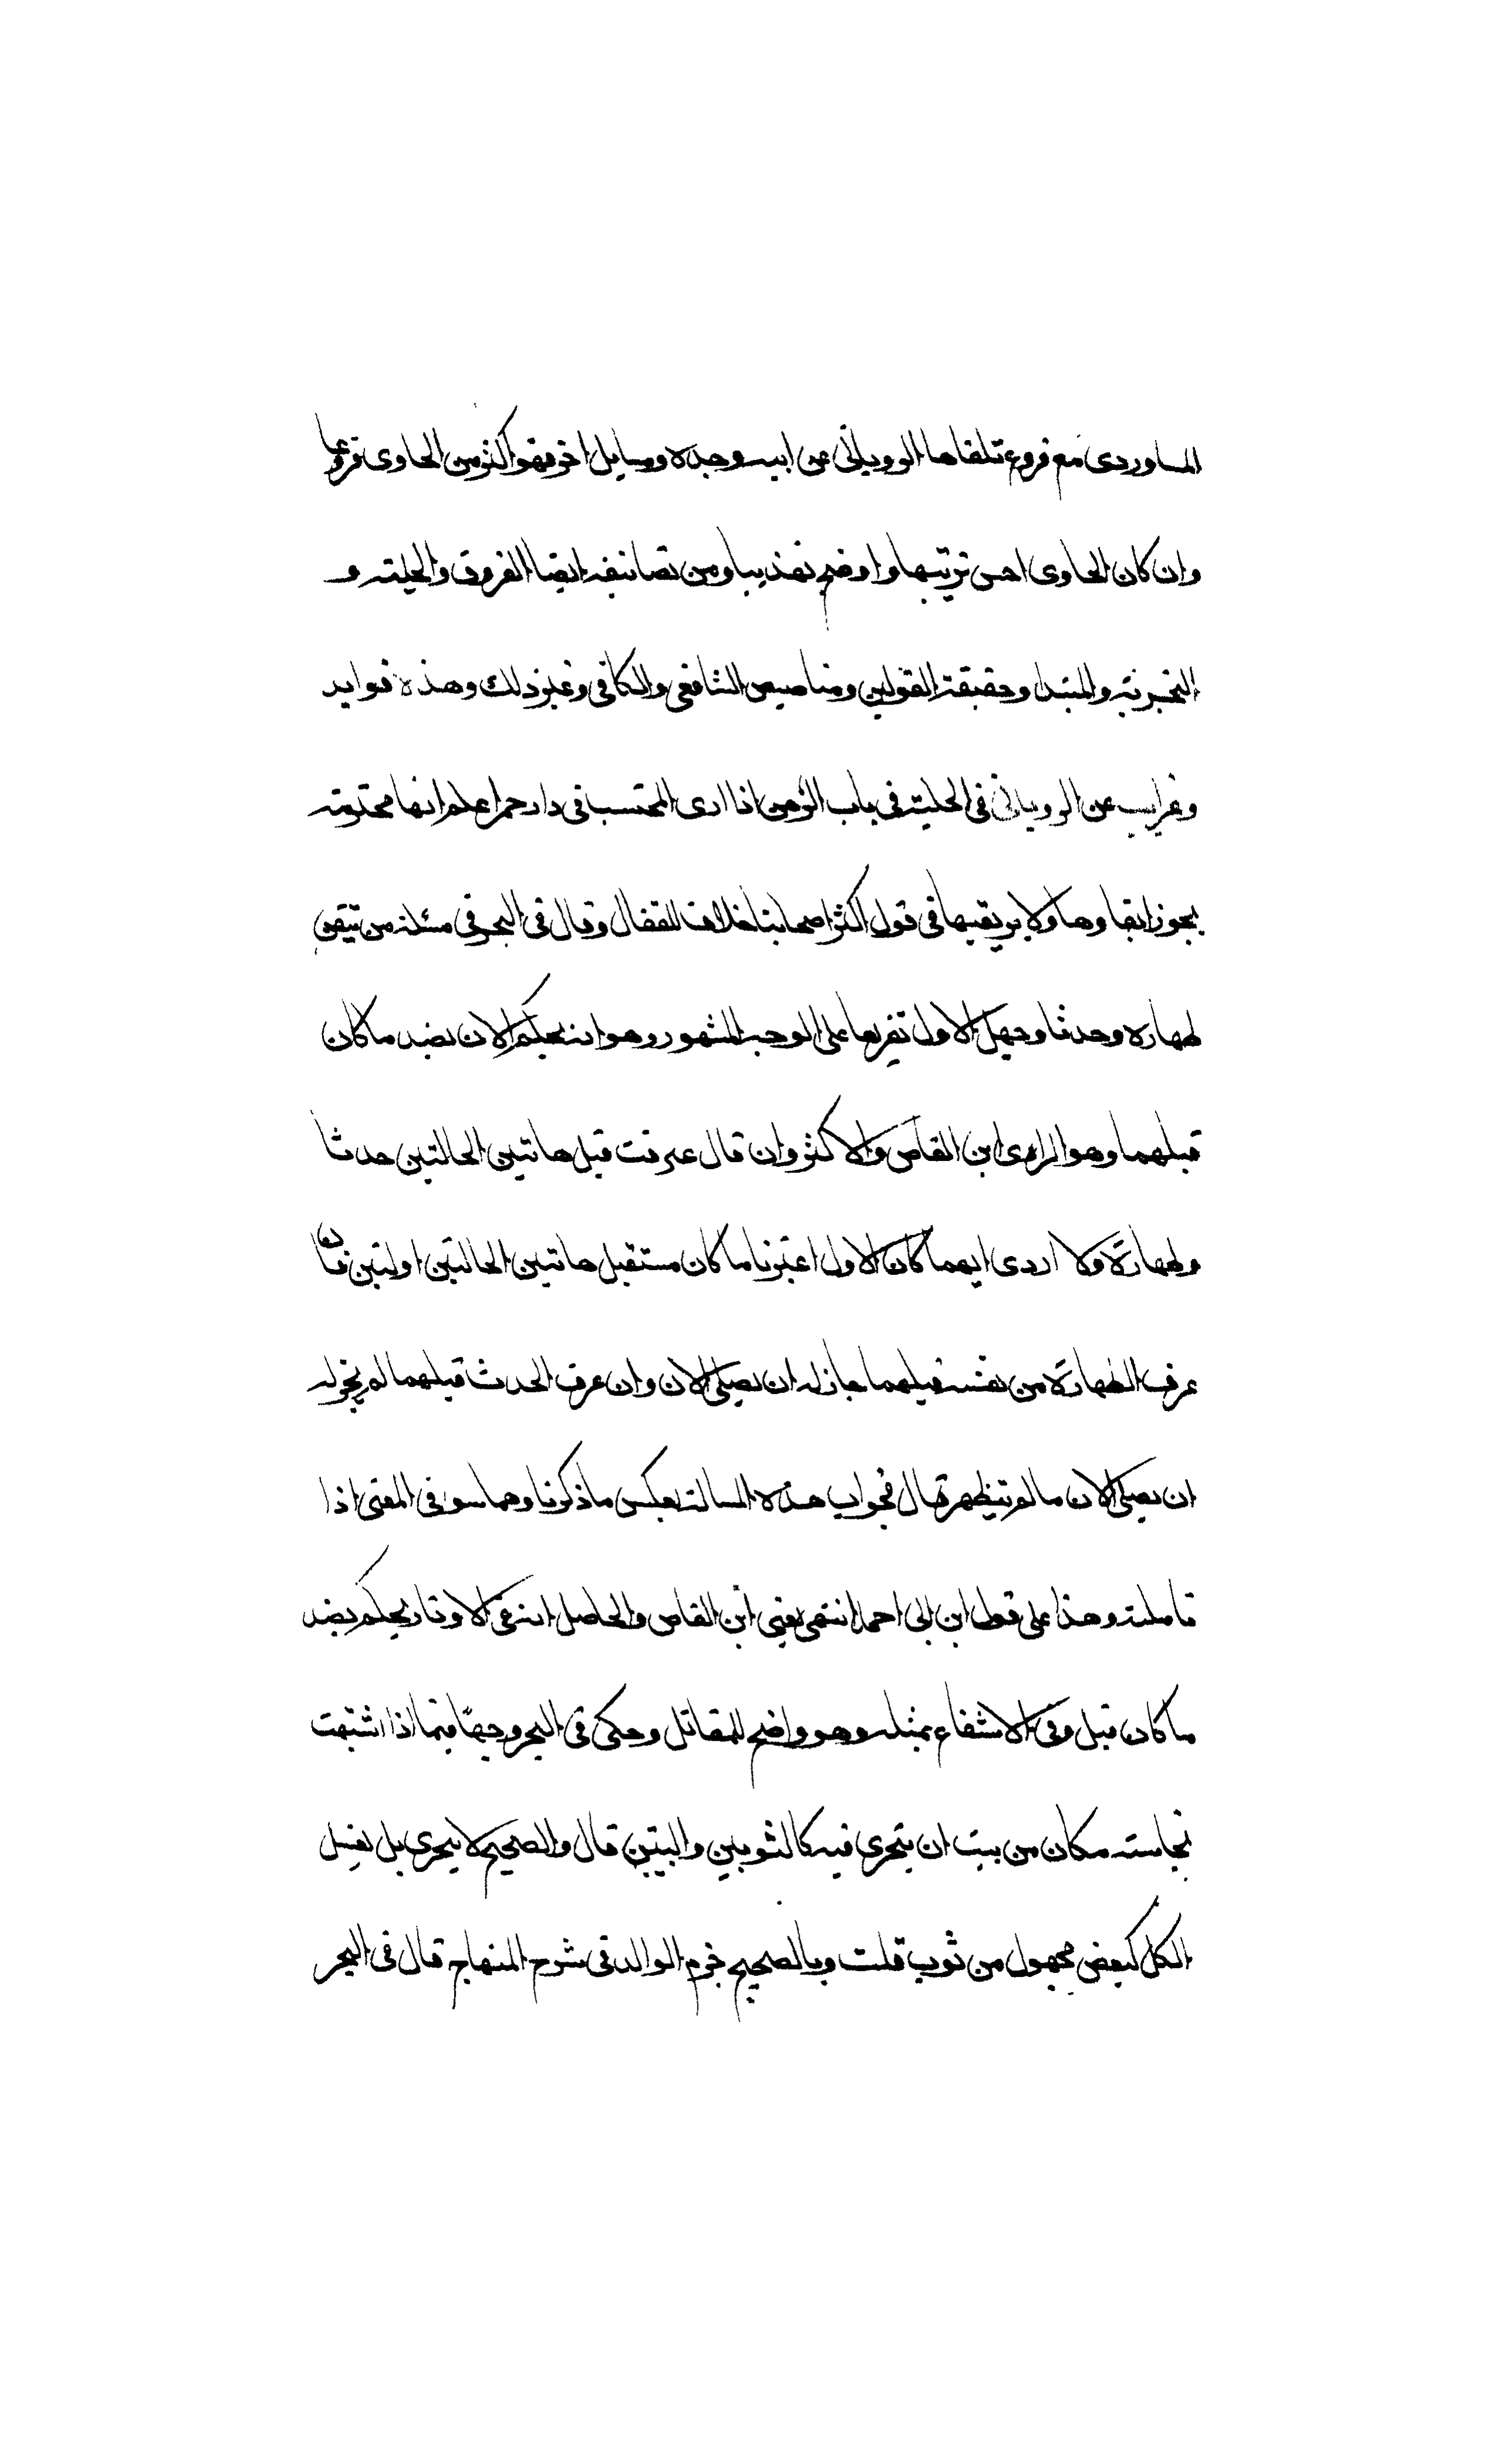 الماوردى مع فروع تلقاها الرويانى عن ابيه وجده ومسايل اخر فهو اكثر من الحاوى فروعا
وان كان الحاوى احسن ترتيبها واوضح تهذيبا ومن تصانيفه ايضا الفروق والحلية و
التجربة والمبتدا وحقيقة القولين ومناصيص الشافعى والكافى وغير ذلك وهذه فوايد
وغرايب عن الرويانى فى الحلية فى باب الرهن اذا ارى المحتسب فى دار خمرا علم انها محترمة
يجوز ابقاوها ولا يريقها فى قول اكثر اصحابنا خلافا للقفال وقال فى البحر فى مسئلة من تيقن
طهاره وحدثا وجهل الاول تفريعا على الوجه المشهور وهو انه يحكم الان بضد ما كان
قبلهما وهو الراى ابن القاص والاكثر وان قال عرفت قبل هاتين الحالتين حدثا
وطهارة ولا ادرى ايهما كان الاول اعتبرنا ما كان مستقبل هاتين الحالتين اوليتين فان
عرف الطهارة من نفسه قبلهما جاز له ان يصلى الان وان عرف الحدث قبلهما لم يجز له
ان يصلى الان ما لم يتطهر قال فجواب هذه المسالة بعكس ما ذكرنا وهما سوا فى المعنى اذا
تاملته وهذا على قول ابن ابى احمد انتهى يعنى ابن القاص والحاصل انه فى الاوتار يحكم بضد
ما كان قبل وفى الاشفاع بمثله وهو واضح للمقاتل وحكى فى البحر وجها فيما اذا اشتبهت
نجاسته مكان من بيت ان يتحرى فيه كالثوبين والبيتين قال والصحيح لا يتحرى بل يغسل
الكل كبعض مجهول من ثوب قلت وبالصحيح جزم الوالد فى شرح المنهاج قال فى البحر